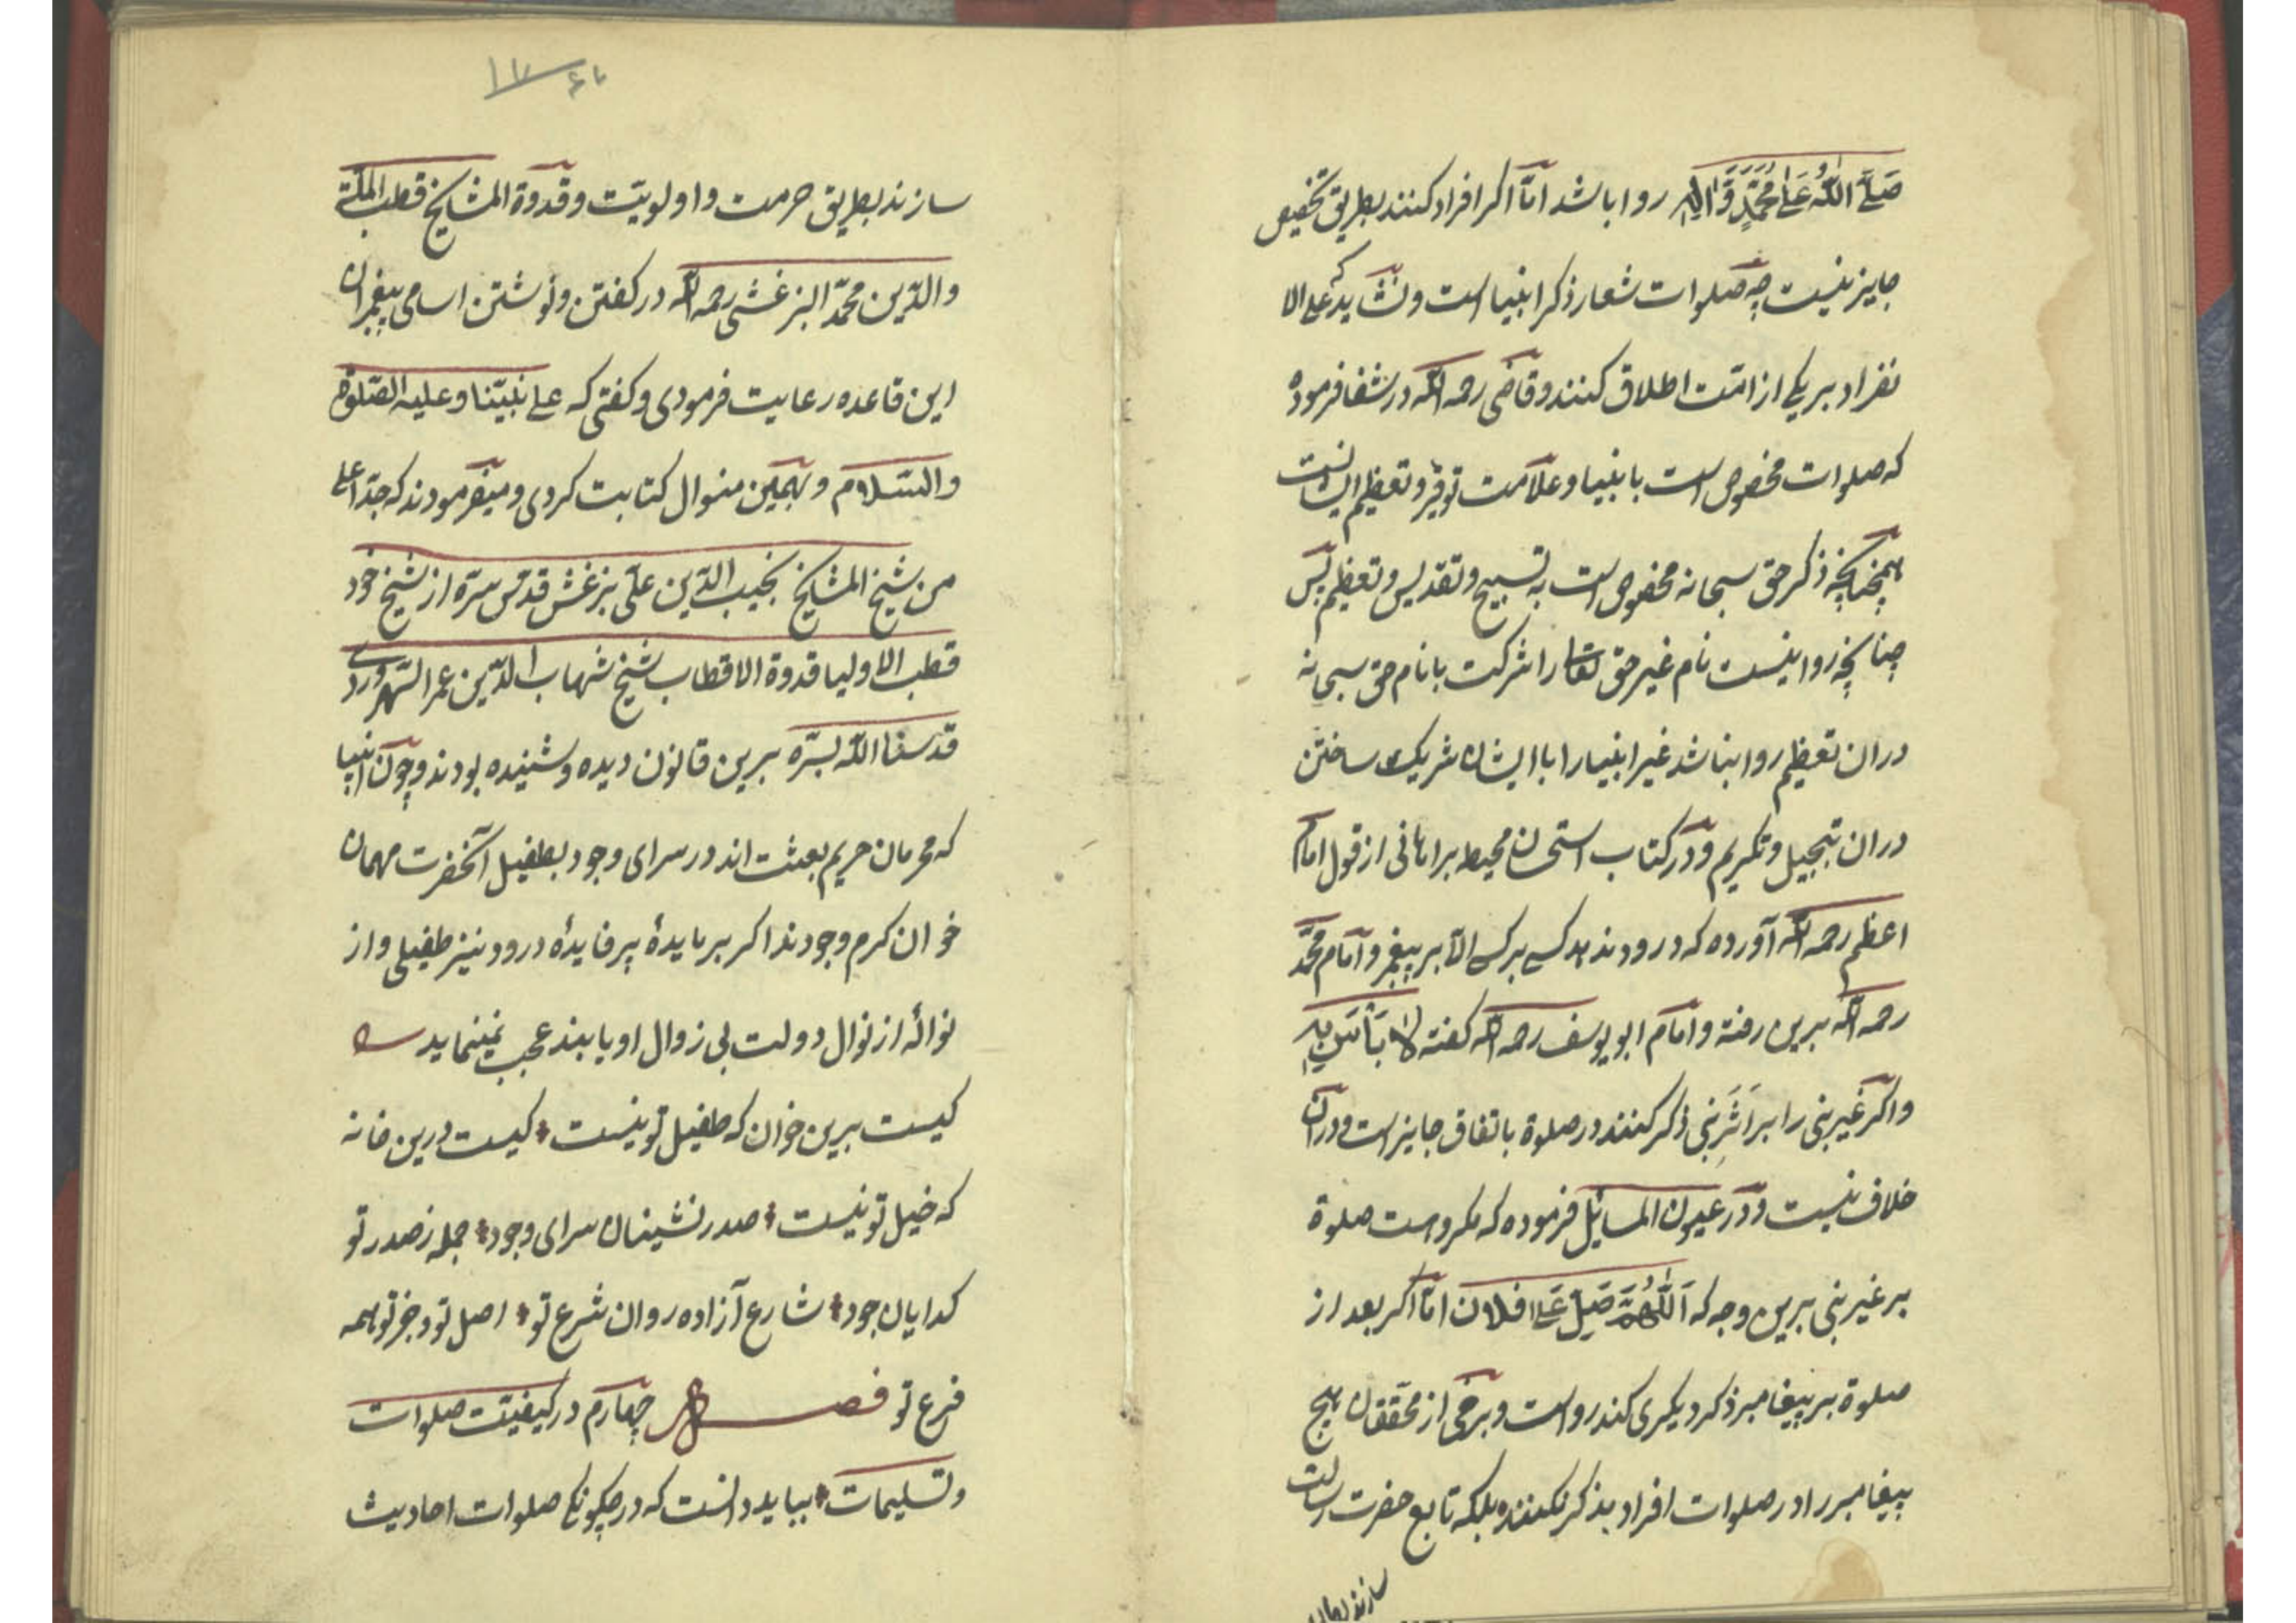 صَلَّی اللّٰهُ عَلٰی مُحَمَّدٍ وَّاٰلِهٖ روا باشد امّا اکر افراد کنند بطریق تخصیص
جایز نیست چه صلوات شعار ذکر انبیا است و نشاید که علی الا
نفراد بر یکی از امّت اطلاق کنند و قاضی رحمه الله در شفا فرموده
که صلوات مخصوص است بانبیا و علامت توقیر و تعظیم ایشانست
همچنانچه ذکر حق سبحانه مخصوص است به تسبیح و تقدیس و تعظیم پس
چنانچه روا نیست نام غیر حق تعالی را شرکت با نام حق سبحانه
دران تعظیم روا نباشد غیر انبیا را با ایشان شریک ساختن
دران تبجیل و تکریم و در کتاب استحسان محیط برهانی از قول امام
اعظم رحمه الله آورده که درود ندهد کسی بر کسی الّا بر پیغمبر و امام محمّد
رحمه الله برین رفته و امام ابو یوسف رحمه الله کفته لا بَأسَ بِهِ
و اکر غیر نبی را بر اَثَرِ نبی ذکر کنند در صلوة باتفاق جایز است و در آن
خلاف نیست و در عیون المسایل فرموده که مکروست صلوة
بر غیر نبی برین وجه که اَللّٰهُمَّ صَلِّ عَلٰی فلان امّا اکر بعد از
صلوة بر پیغامبر ذکر دیکری کند رواست و برخی از محققان هیچ
پیغامبر را در صلوات افراد بذکر نکنند بلکه تابع حضرت رسالت
سازند
۱۷
سازند بطریق حرمت و اولویّت و قدوة المشایخ قطب الملّة
والدّین محمّد البزغشی رحمه الله در کفتن و نوشتن اسامی پیغمبران
این قاعده رعایت فرمودی و کفتی که علی نبیّنا و علیه الصّلوة
والسّلام و بهمین منوال کتابت کردی و میفرمودند که جدّ اعلی
من شیخ المشایخ نجیب الدّین علی بزغش قدّس سرّه از شیخ خود
قطب الاولیا قدوة الاقطاب شیخ شهاب الدّین عمر السّهروردی
قدّسنا الله بسرّه برین قانون دیده و شنیده بودند و چون انبیا
که محرمان حریم بعثت اند در سرای وجود بطفیل آنحضرت مهمان
خوان کرم وجودند اکر بر مایدهٔ پر فایدهٔ درود نیز طفیلی و از
نوالهٔ از نوال دولت بی زوال او یابند عجب نمینماید
کیست برین خوان که طفیل تو نیست کیست درین خانه
که خیل تو نیست صدر نشینان سرای وجود جمله ز صدر تو
کدایان جود شارع آزاده روان شرع تو اصل تو و جز تو همه
فرع تو فصل چهارم در کیفیّت صلوات
و تسلیمات بباید دانست که در چکونکی صلوات احادیث